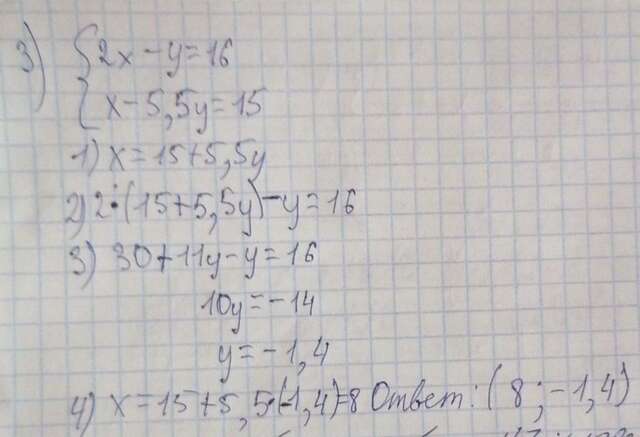 3) { 2x - y = 16
x - 5,5y = 15
1) x = 15 + 5,5y
2) 2 · (15 + 5,5y) - y = 16
3) 30 + 11y - y = 16
10y = -14
y = -1,4
4) x = 15 + 5,5·(-1,4) = 8 Ответ: (8; -1,4)